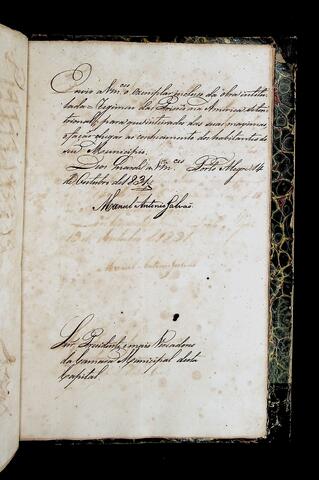 Envio a Vm.ces o exemplar incluso da obra intitu-
lada = Regimen das Prisoens na America Seten-
trional, para que inteirados das suas maximas
o fação chegar ao conhecimento dos habitantes do
seu Municipio.
Deos Guarde a Vm.ces Porto Alegre 14
de Outubro de 1831
Manoel Antonio Galvão
Snr. Presidente, e mais Vereadores
da Camara Municipal desta
Capital.